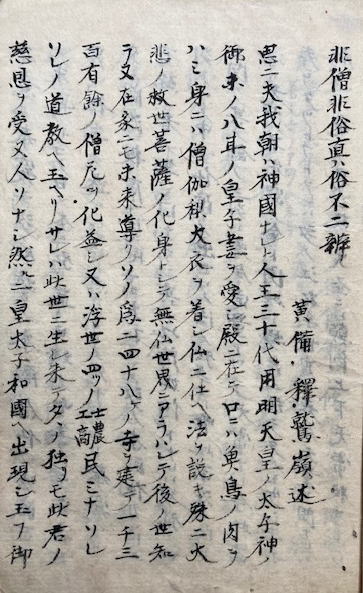 非僧非俗真俗不二辨
黄備 釋鷲嶺述
思ニ夫我朝ハ神國ナレト人王三十代用明天皇ノ太子神ノ
御末ノ八耳ノ皇子妻ヲ愛シ殿ニ在テロニハ魚鳥ノ肉ヲ
ハミ身ニハ僧伽梨大衣ヲ着シ仏ニ仕ヘ法ヲ説キ殊ニ大
悲ノ救世菩薩ノ化身トシテ無仏世界ニアラハレテ後ノ世知
ラヌ在家ニモ未来導ソノ為ニ四十八ケノ寺ヲ建テ一千三
百有餘ノ僧尼ヲ化益シ又ハ浮世ノ四ツノ士農工商民ミナソレ
ソレノ道教ヘ玉ヘリサレハ此世ニ生レ来テタノ独リモ此君ノ
慈恩ヲ受ヌ人ソナシ然ルニ皇太子和國ヘ出現シ玉フ御